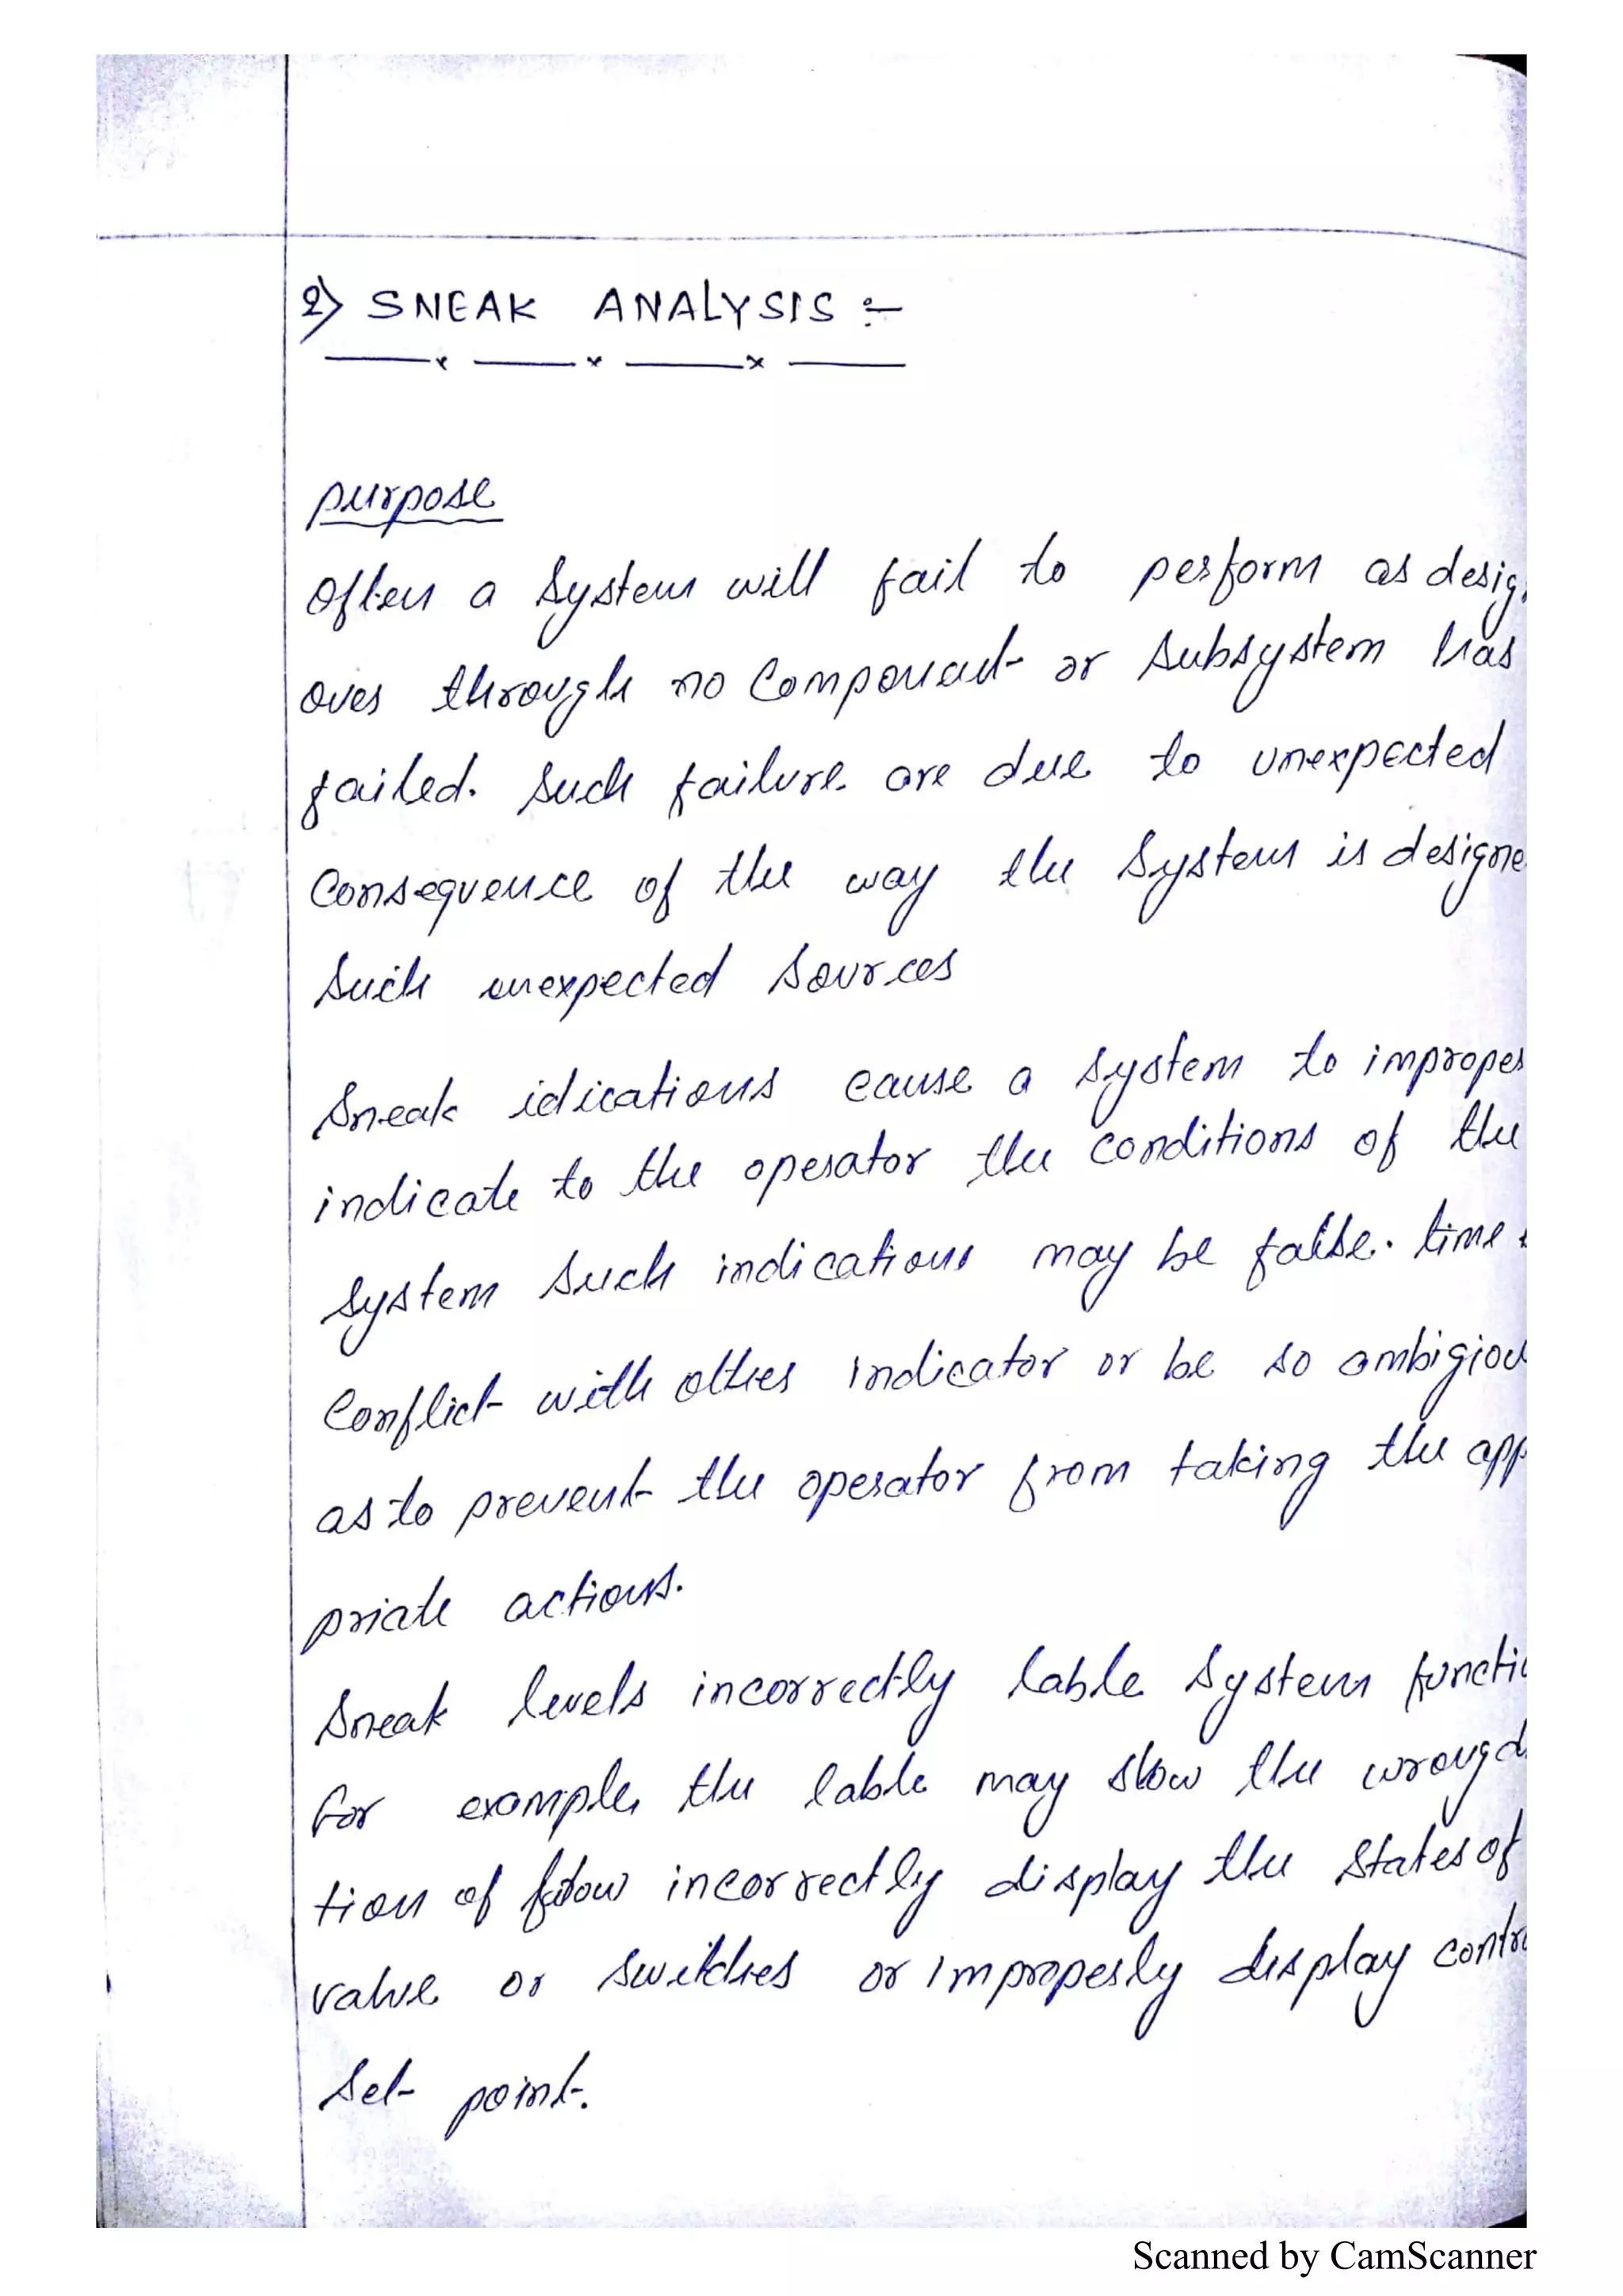 2) SNEAK ANALYSIS :-
purpose
Often a system will fail to perform as desig
oves through no component or subsystem has
failed. Such failure are due to unexpected
Consequence of the way the System is designe
Such unexpected sources
Sneak idications cause a system to improper
indicate to the operator the conditions of the
system such indications may be false. time
Conflict with other indicator or be so ambigiou
as to prevent the operator from taking the app
priate actions.
Sneak levels incorrectly lable system functi
For example, the lable may slow the wrong d
tion of flow incorrectly display the states of
valve or switches or improperly display contro
Set point.
Scanned by CamScanner